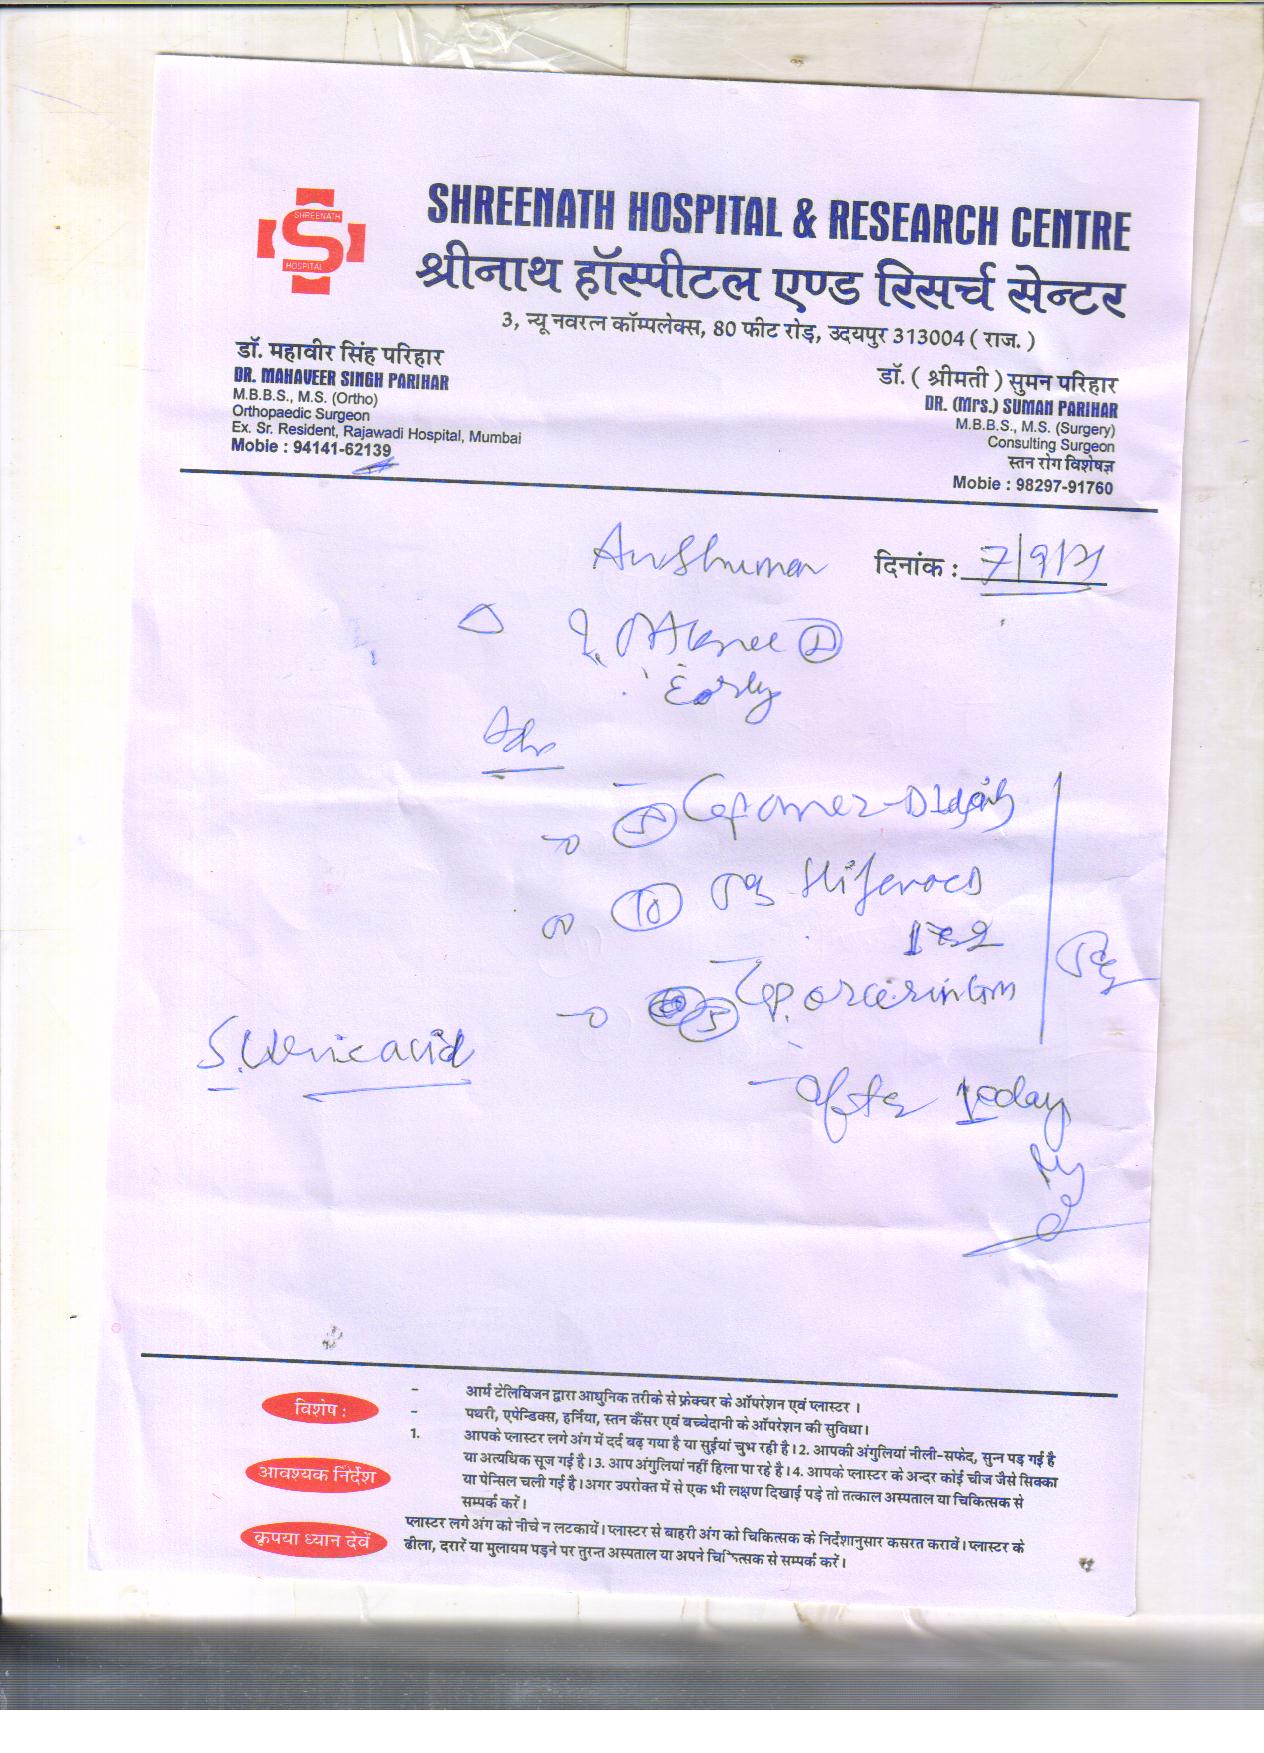 SHREENATH
HOSPITAL
SHREENATH HOSPITAL & RESEARCH CENTRE
श्रीनाथ हॉस्पीटल एण्ड रिसर्च सेन्टर
3, न्यू नवरत्न कॉम्पलेक्स, 80 फीट रोड़, उदयपुर 313004 ( राज. )
डॉ. महावीर सिंह परिहार
DR. MAHAVEER SINGH PARIHAR
M.B.B.S., M.S. (Ortho)
Orthopaedic Surgeon
Ex. Sr. Resident, Rajawadi Hospital, Mumbai
Mobie : 94141-62139
डॉ. ( श्रीमती ) सुमन परिहार
DR. (Mrs.) SUMAN PARIHAR
M.B.B.S., M.S. (Surgery)
Consulting Surgeon
स्तन रोग विशेषज्ञ
Mobie : 98297-91760
Anshuman
दिनांक :
Knee
Early
Adv
10
S. Uric acid
after 10 day
विशेष :
- आर्म टेलिविजन द्वारा आधुनिक तरीके से फ्रेक्चर के ऑपरेशन एवं प्लास्टर ।
- पथरी, एपेन्डिक्स, हर्निया, स्तन कैंसर एवं बच्चेदानी के ऑपरेशन की सुविधा।
आवश्यक निर्देश
1. आपके प्लास्टर लगे अंग में दर्द बढ़ गया है या सुईयां चुभ रही है। 2. आपकी अंगुलियां नीली-सफेद, सुन्न पड़ गई है
या अत्यधिक सूज गई है। 3. आप अंगुलियां नहीं हिला पा रहे है। 4. आपके प्लास्टर के अन्दर कोई चीज जैसे सिक्का
या पेन्सिल चली गई है। अगर उपरोक्त में से एक भी लक्षण दिखाई पड़े तो तत्काल अस्पताल या चिकित्सक से
सम्पर्क करें।
कृपया ध्यान देवें
प्लास्टर लगे अंग को नीचे न लटकायें। प्लास्टर से बाहरी अंग को चिकित्सक के निर्देशानुसार कसरत करावें। प्लास्टर के
ढीला, दरारें या मुलायम पड़ने पर तुरन्त अस्पताल या अपने चिकित्सक से सम्पर्क करें।